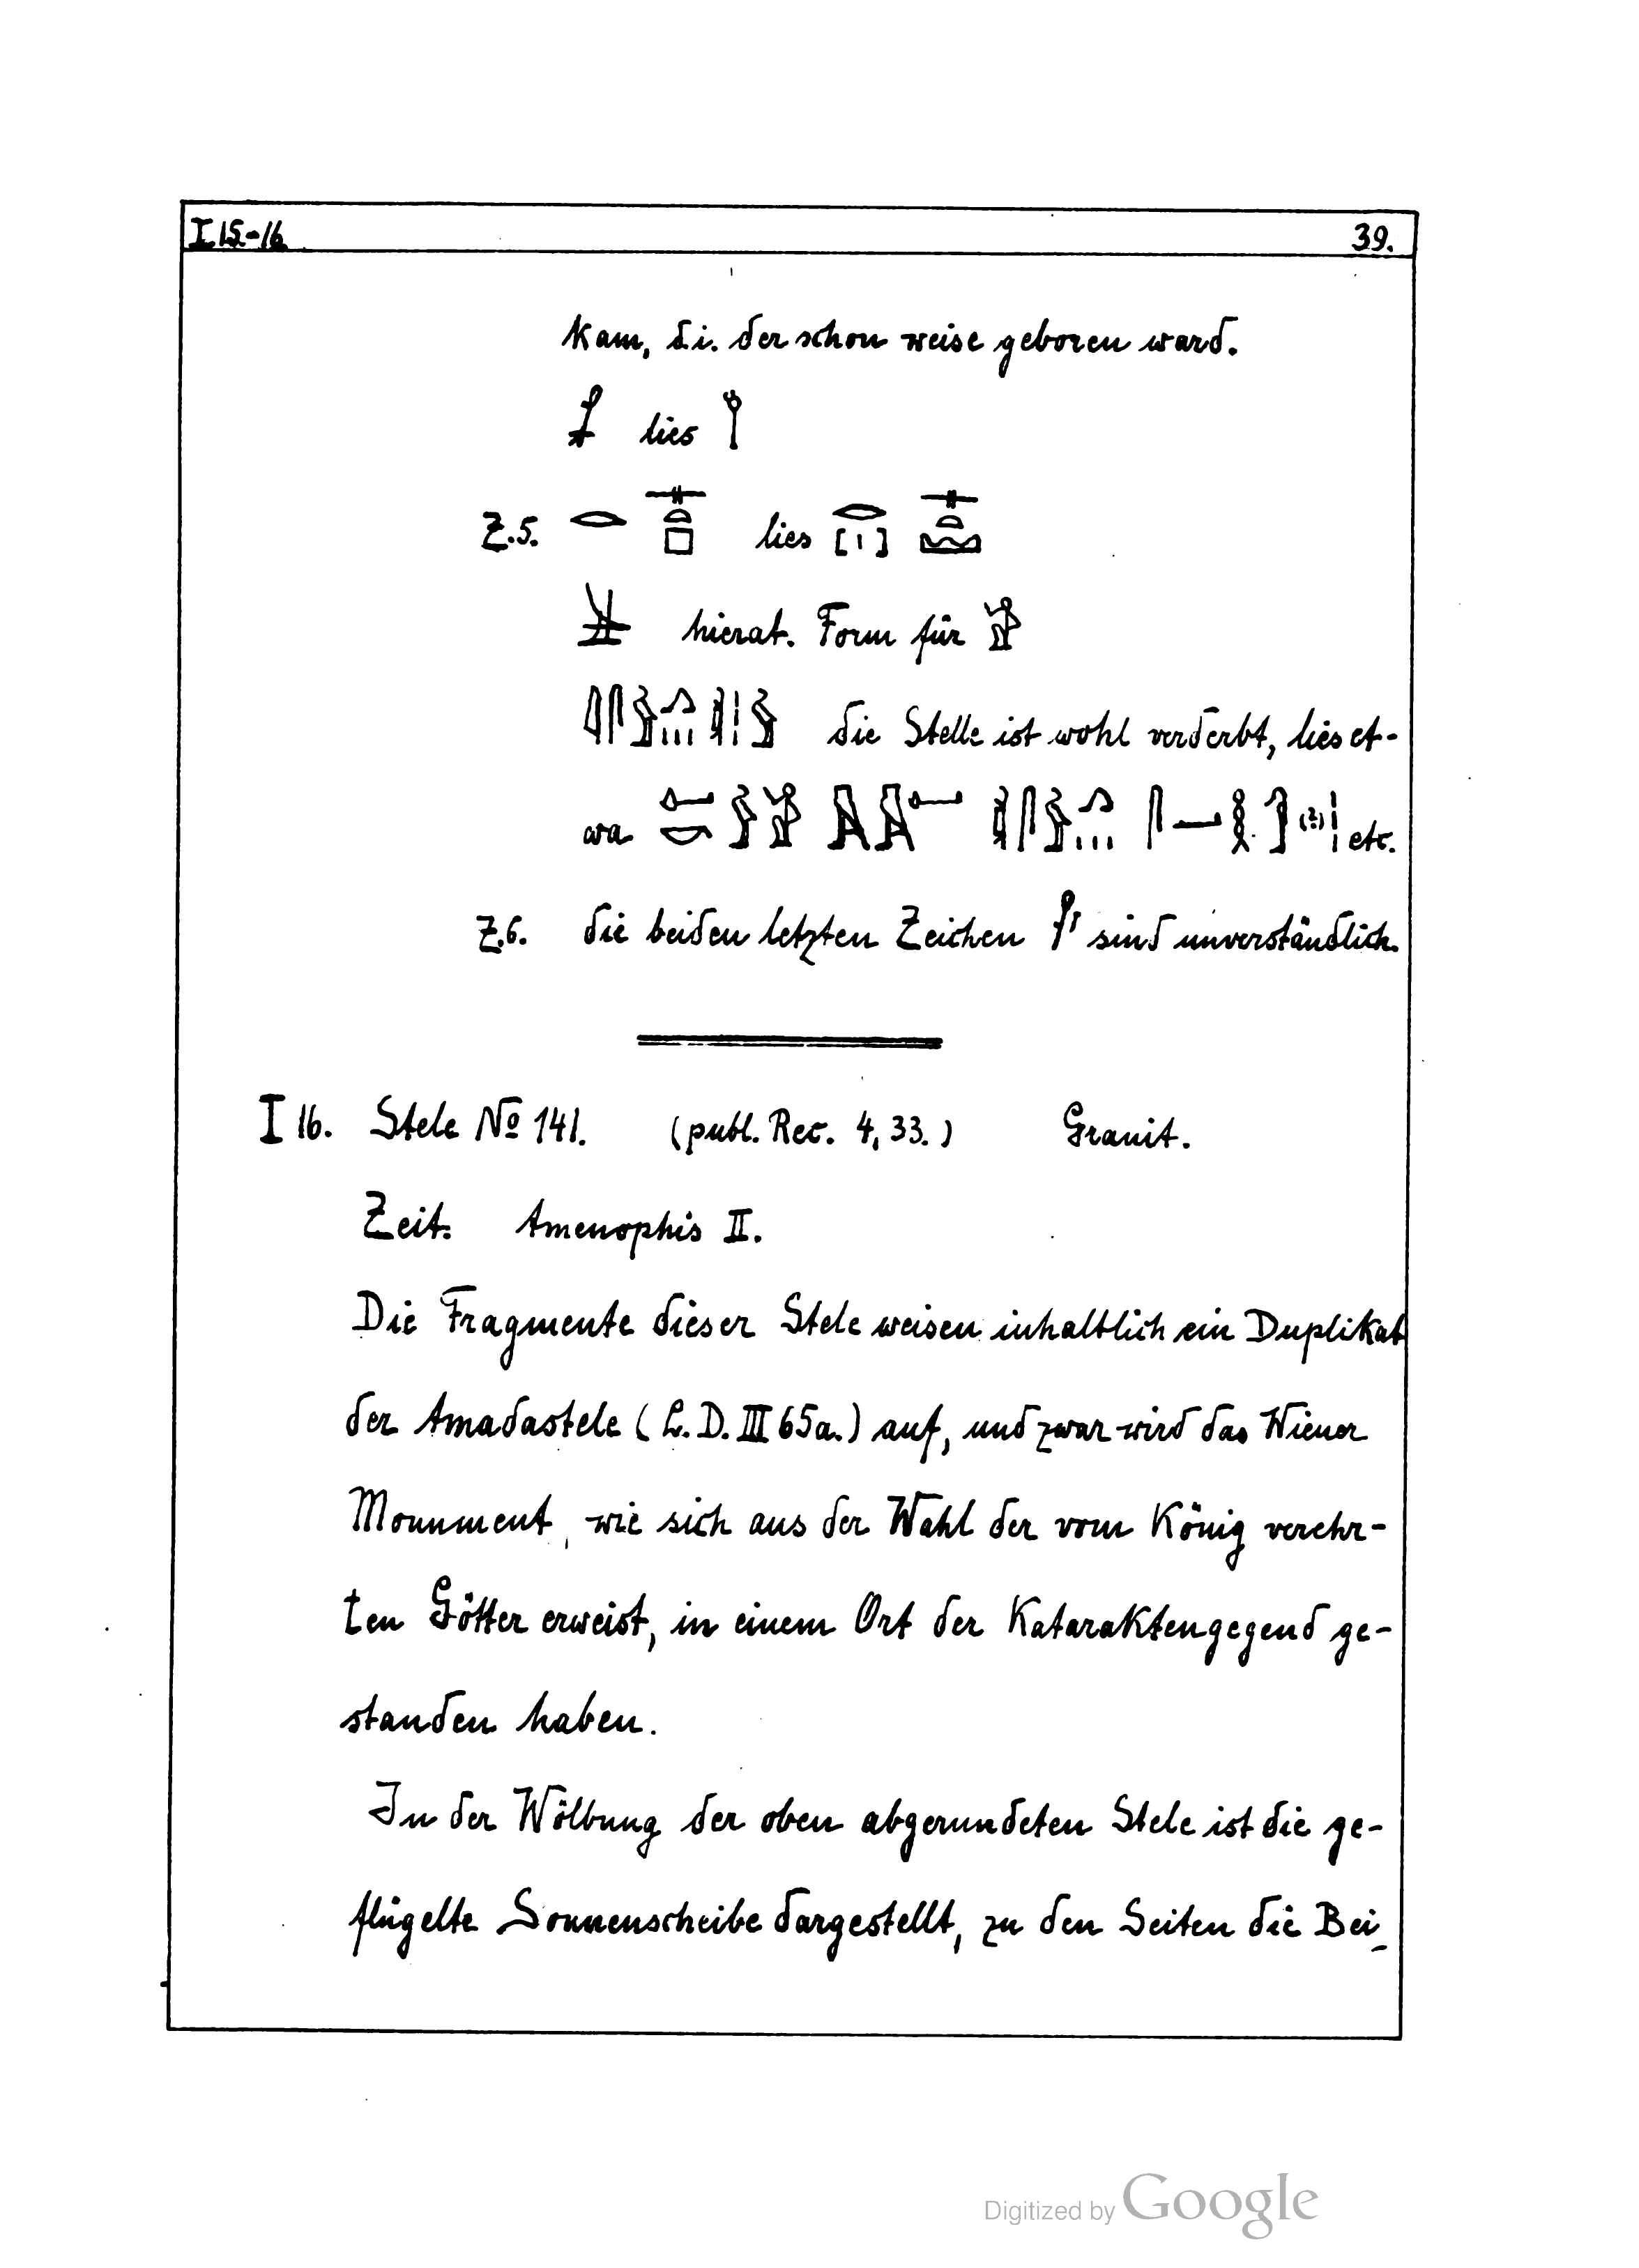 I 15-16
39.
kam, d.i. der schon weise geboren ward.
lies
Z.5. lies [ ]
hierat. Form für
die Stelle ist wohl verderbt, lies et-
wa etc.
Z.6. die beiden letzten Zeichen sind unverständlich.
I 16. Stele No 141. (publ. Rec. 4, 33.) Granit.
Zeit. Amenophis II.
Die Fragmente dieser Stele weisen inhaltlich ein Duplikat
der Amadastele (L. D. III 65a.) auf, und zwar wird das Wiener
Monument, wie sich aus der Wahl der vom König verehr-
ten Götter erweist, in einem Ort der Kataraktengegend ge-
standen haben.
In der Wölbung der oben abgerundeten Stele ist die ge-
flügelte Sonnenscheibe dargestellt, zu den Seiten die Bei-
Digitized by Google